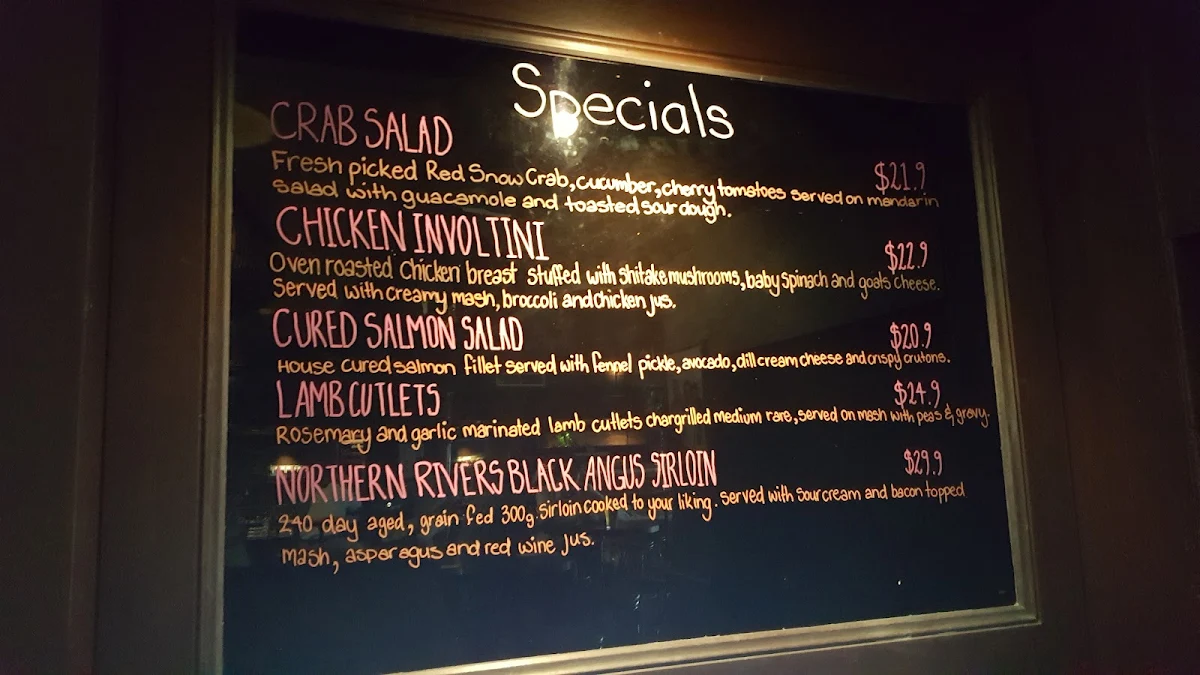 Specials
CRAB SALAD $21.9
Fresh picked Red Snow Crab, cucumber, cherry tomatoes served on mandarin
salad with guacamole and toasted sourdough.
CHICKEN INVOLTINI $22.9
Oven roasted Chicken breast stuffed with shitake mushrooms, baby spinach and goats cheese.
Served with creamy mash, broccoli and chicken jus.
CURED SALMON SALAD $20.9
House cured salmon fillet served with fennel pickle, avocado, dill cream cheese and crispy crutons.
LAMB CUTLETS $24.9
Rosemary and garlic marinated lamb cutlets chargrilled medium rare, served on mash with peas & gravy.
NORTHERN RIVERS BLACK ANGUS SIRLOIN $29.9
240 day aged, grain fed 300g sirloin cooked to your liking. Served with sour cream and bacon topped
mash, asparagus and red wine jus.